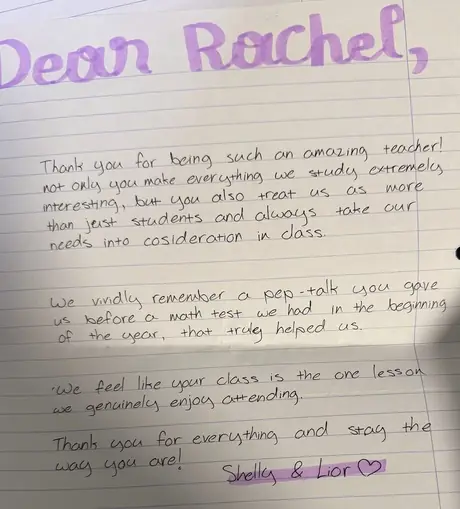 Dear Rachel,
Thank you for being such an amazing teacher!
not only you make everything we study extremely
interesting, but you also treat us as more
than just students and always take our
needs into cosideration in class.
We vividly remember a pep-talk you gave
us before a math test we had in the beginning
of the year, that truly helped us.
We feel like your class is the one lesson
we genuinely enjoy attending.
Thank you for everything and stay the
way you are!
Shelly & Lior ♡